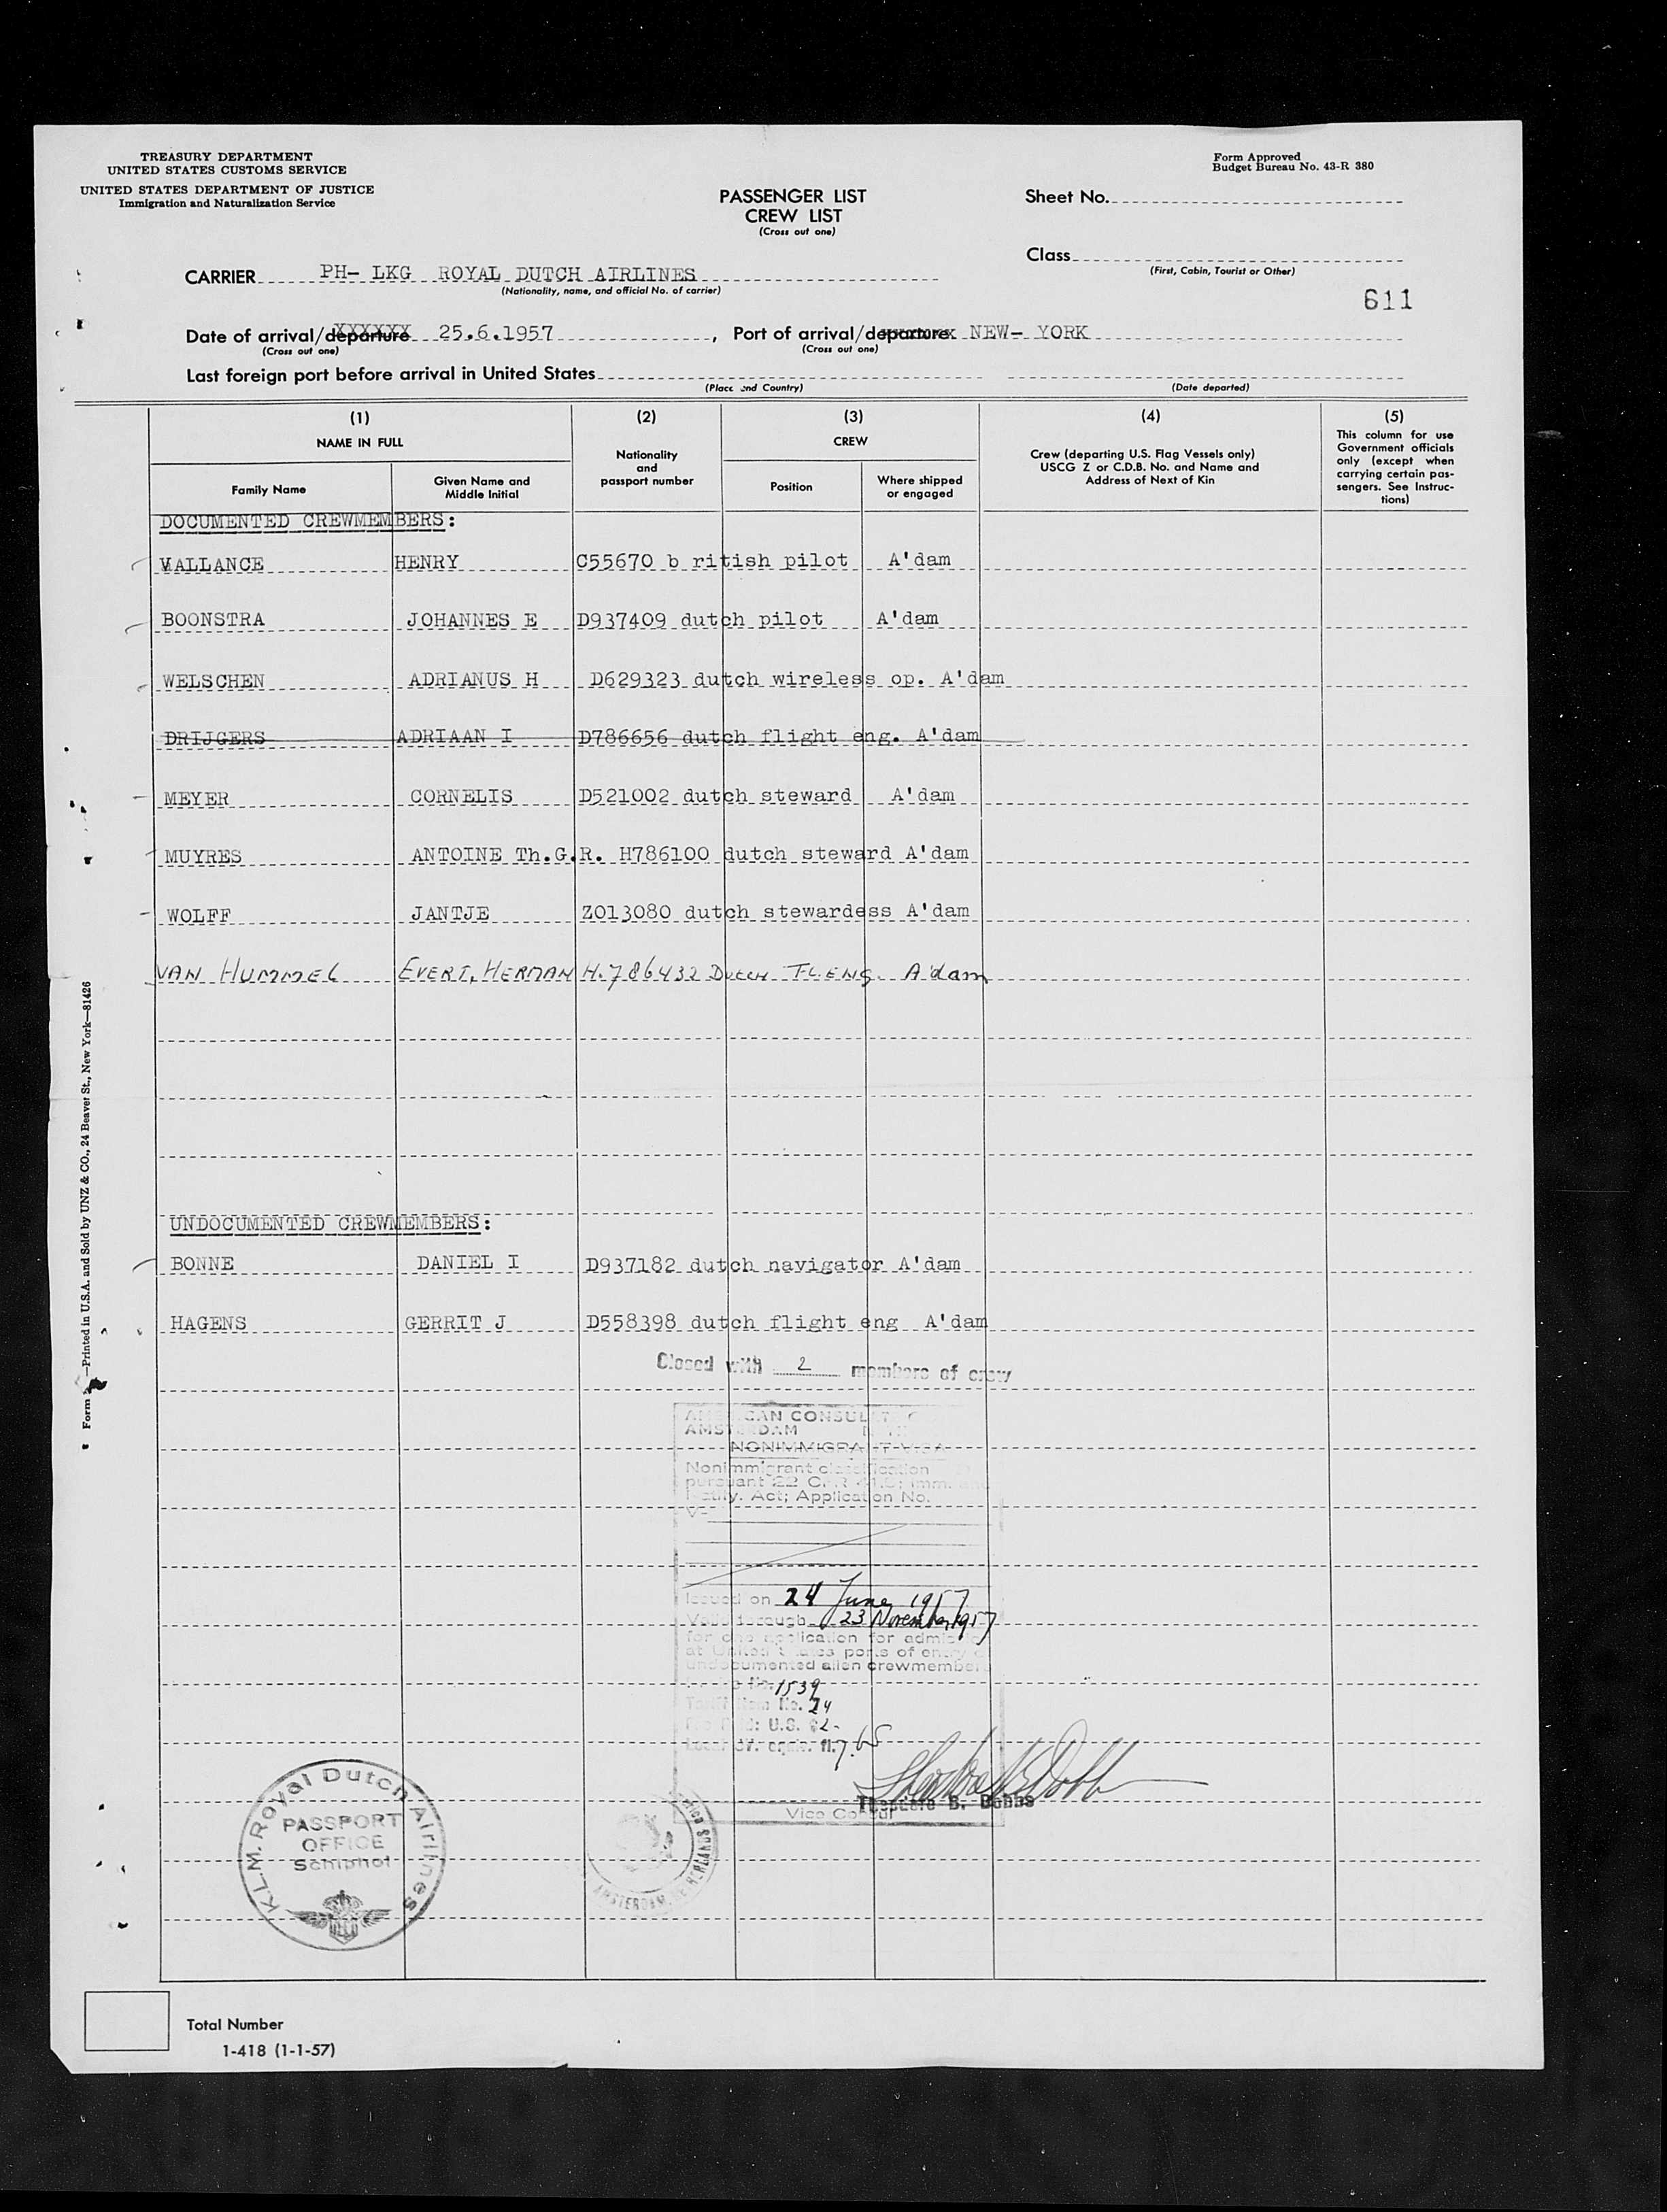 TREASURY DEPARTMENT
UNITED STATES CUSTOMS SERVICE
UNITED STATES DEPARTMENT OF JUSTICE
Immigration and Naturalization Service
Form Approved
Budget Bureau No. 43-R 380
PASSENGER LIST
CREW LIST
(Cross out one)
Sheet No.
Class
(First, Cabin, Tourist or Other)
CARRIER PH- LKG ROYAL DUTCH AIRLINES
(Nationality, name, and official No. of carrier)
611
Date of arrival/departure 25.6.1957, Port of arrival/departure NEW- YORK
(Cross out one) (Cross out one)
Last foreign port before arrival in United States
(Place and Country) (Date departed)
(1) (2) (3) (4) (5)
NAME IN FULL
Family Name
Given Name and
Middle Initial
Nationality
and
passport number
CREW
Position
Where shipped
or engaged
Crew (departing U.S. Flag Vessels only)
USCG Z or C.D.B. No. and Name and
Address of Next of Kin
This column for use
Government officials
only (except when
carrying certain pas-
sengers. See Instruc-
tions)
DOCUMENTED CREWMEMBERS:
VALLANCE HENRY C55670 b ritish pilot A'dam
BOONSTRA JOHANNES E D937409 dutch pilot A'dam
WELSCHEN ADRIANUS H D629323 dutch wireless op. A'dam
DRIJGERS ADRIAAN I D786656 dutch flight eng. A'dam
MEYER CORNELIS D521002 dutch steward A'dam
MUYRES ANTOINE Th.G.R. H786100 dutch steward A'dam
WOLFF JANTJE Z013080 dutch stewardess A'dam
VAN HUMMEL EVERT, HERMAN H.786432 DUTCH FL.ENG. A'dam
UNDOCUMENTED CREWMEMBERS:
BONNE DANIEL I D937182 dutch navigator A'dam
HAGENS GERRIT J D558398 dutch flight eng A'dam
Closed with 2 members of crew
AMERICAN CONSULATE
AMSTERDAM
NONIMMIGRANT VISA
Nonimmigrant classification
pursuant 22 CFR 41.5; Imm. and
Natlty. Act; Application No.
V-
Issued on 24 June 1957
Valid through 23 November 1957
for one application for admission
at United States ports of entry
undocumented alien crewmembers
No. 1539
Tariff Item No. 24
Fee Paid: U.S. $2-
Local cy. equiv. fl. 7.65
Theodore B. Dobbs
Vice Consul
K.L.M. Royal Dutch Airlines
PASSPORT
OFFICE
Schiphol
AMSTERDAM, NETHERLANDS
Form —Printed in U.S.A. and Sold by UNZ & CO., 24 Beaver St., New York—81426
Total Number
1-418 (1-1-57)